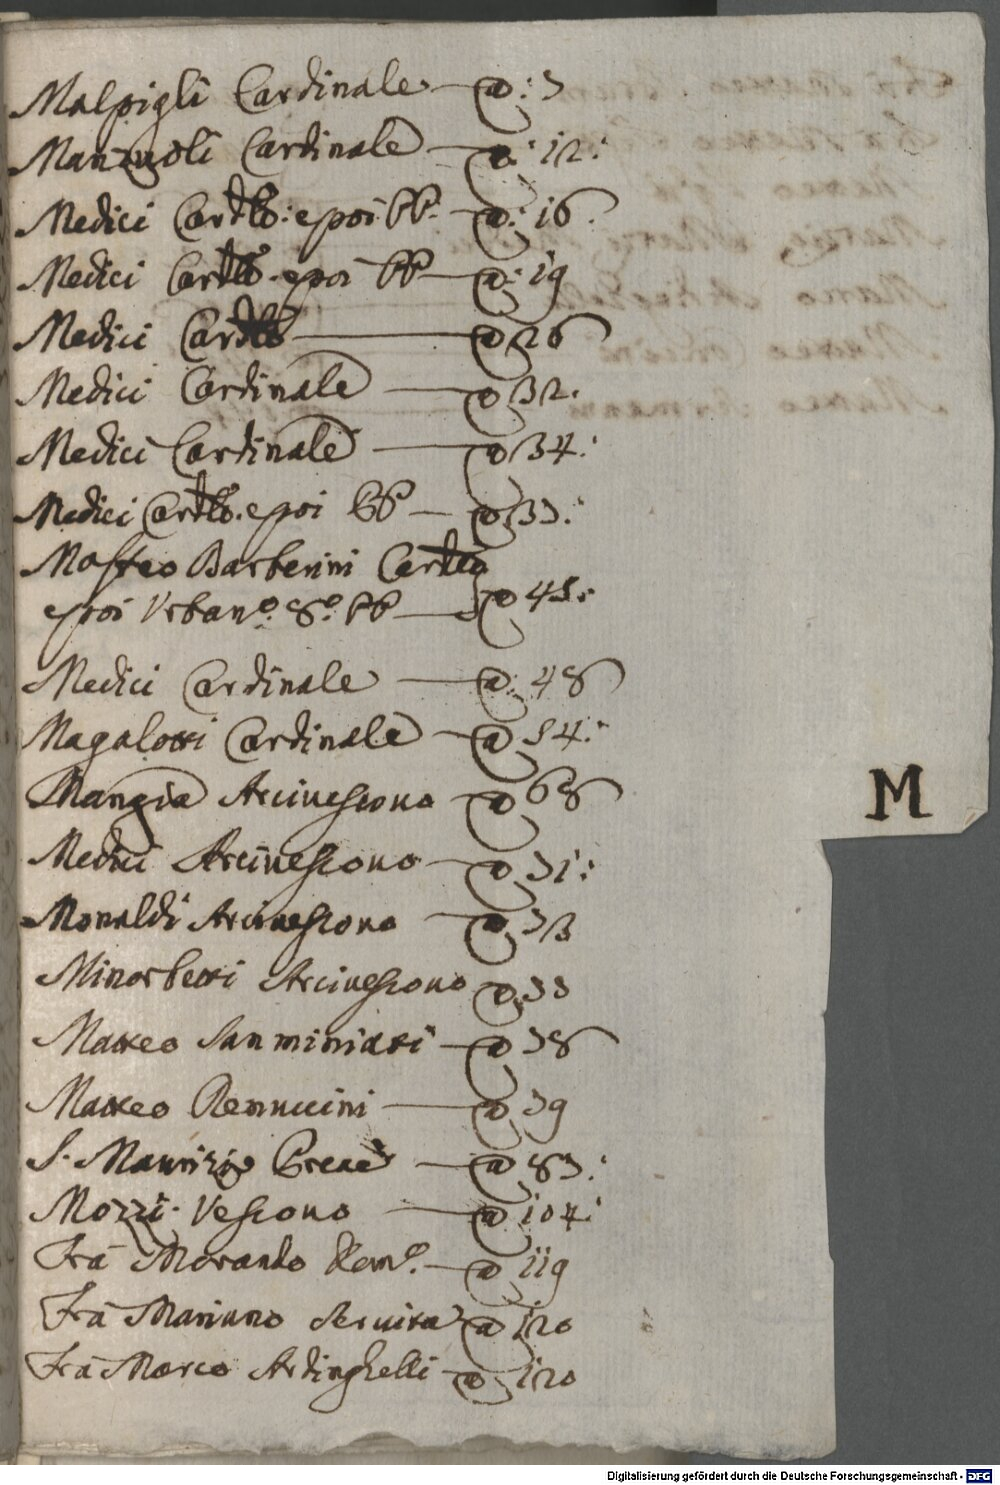 Malpigli Cardinale — a: 5
Manzuoli Cardinale — a: 12:
Medici Cardle: e poi PP. — a: 16.
Medici Cardle. e poi PP — a: 19
Medici Cardle — a 26
Medici Cardinale — a 32.
Medici Cardinale — a 34:
Medici Cardle. e poi PP — a 35:
Maffeo Barberini Cardle
e poi Urbano. 8o. PP — a 45:
Medici Cardinale — a: 48
Magalotti Cardinale — a 54:
Mangia Arcivescovo — a 68
M
Medici Arcivescovo — a 51:
Monaldi Arcivescovo — a
Minorbetti Arcivescovo a 55
Matteo Sanminiati — a 58
Matteo Renuccini — a 59
S. Maurizio — a 83:
Mozzi Vescovo — a 104:
Frà Morando — a 119
Frà Mariano Servita a 120
Frà Marco Ardinghelli — a 120
Digitalisierung gefördert durch die Deutsche Forschungsgemeinschaft - DFG